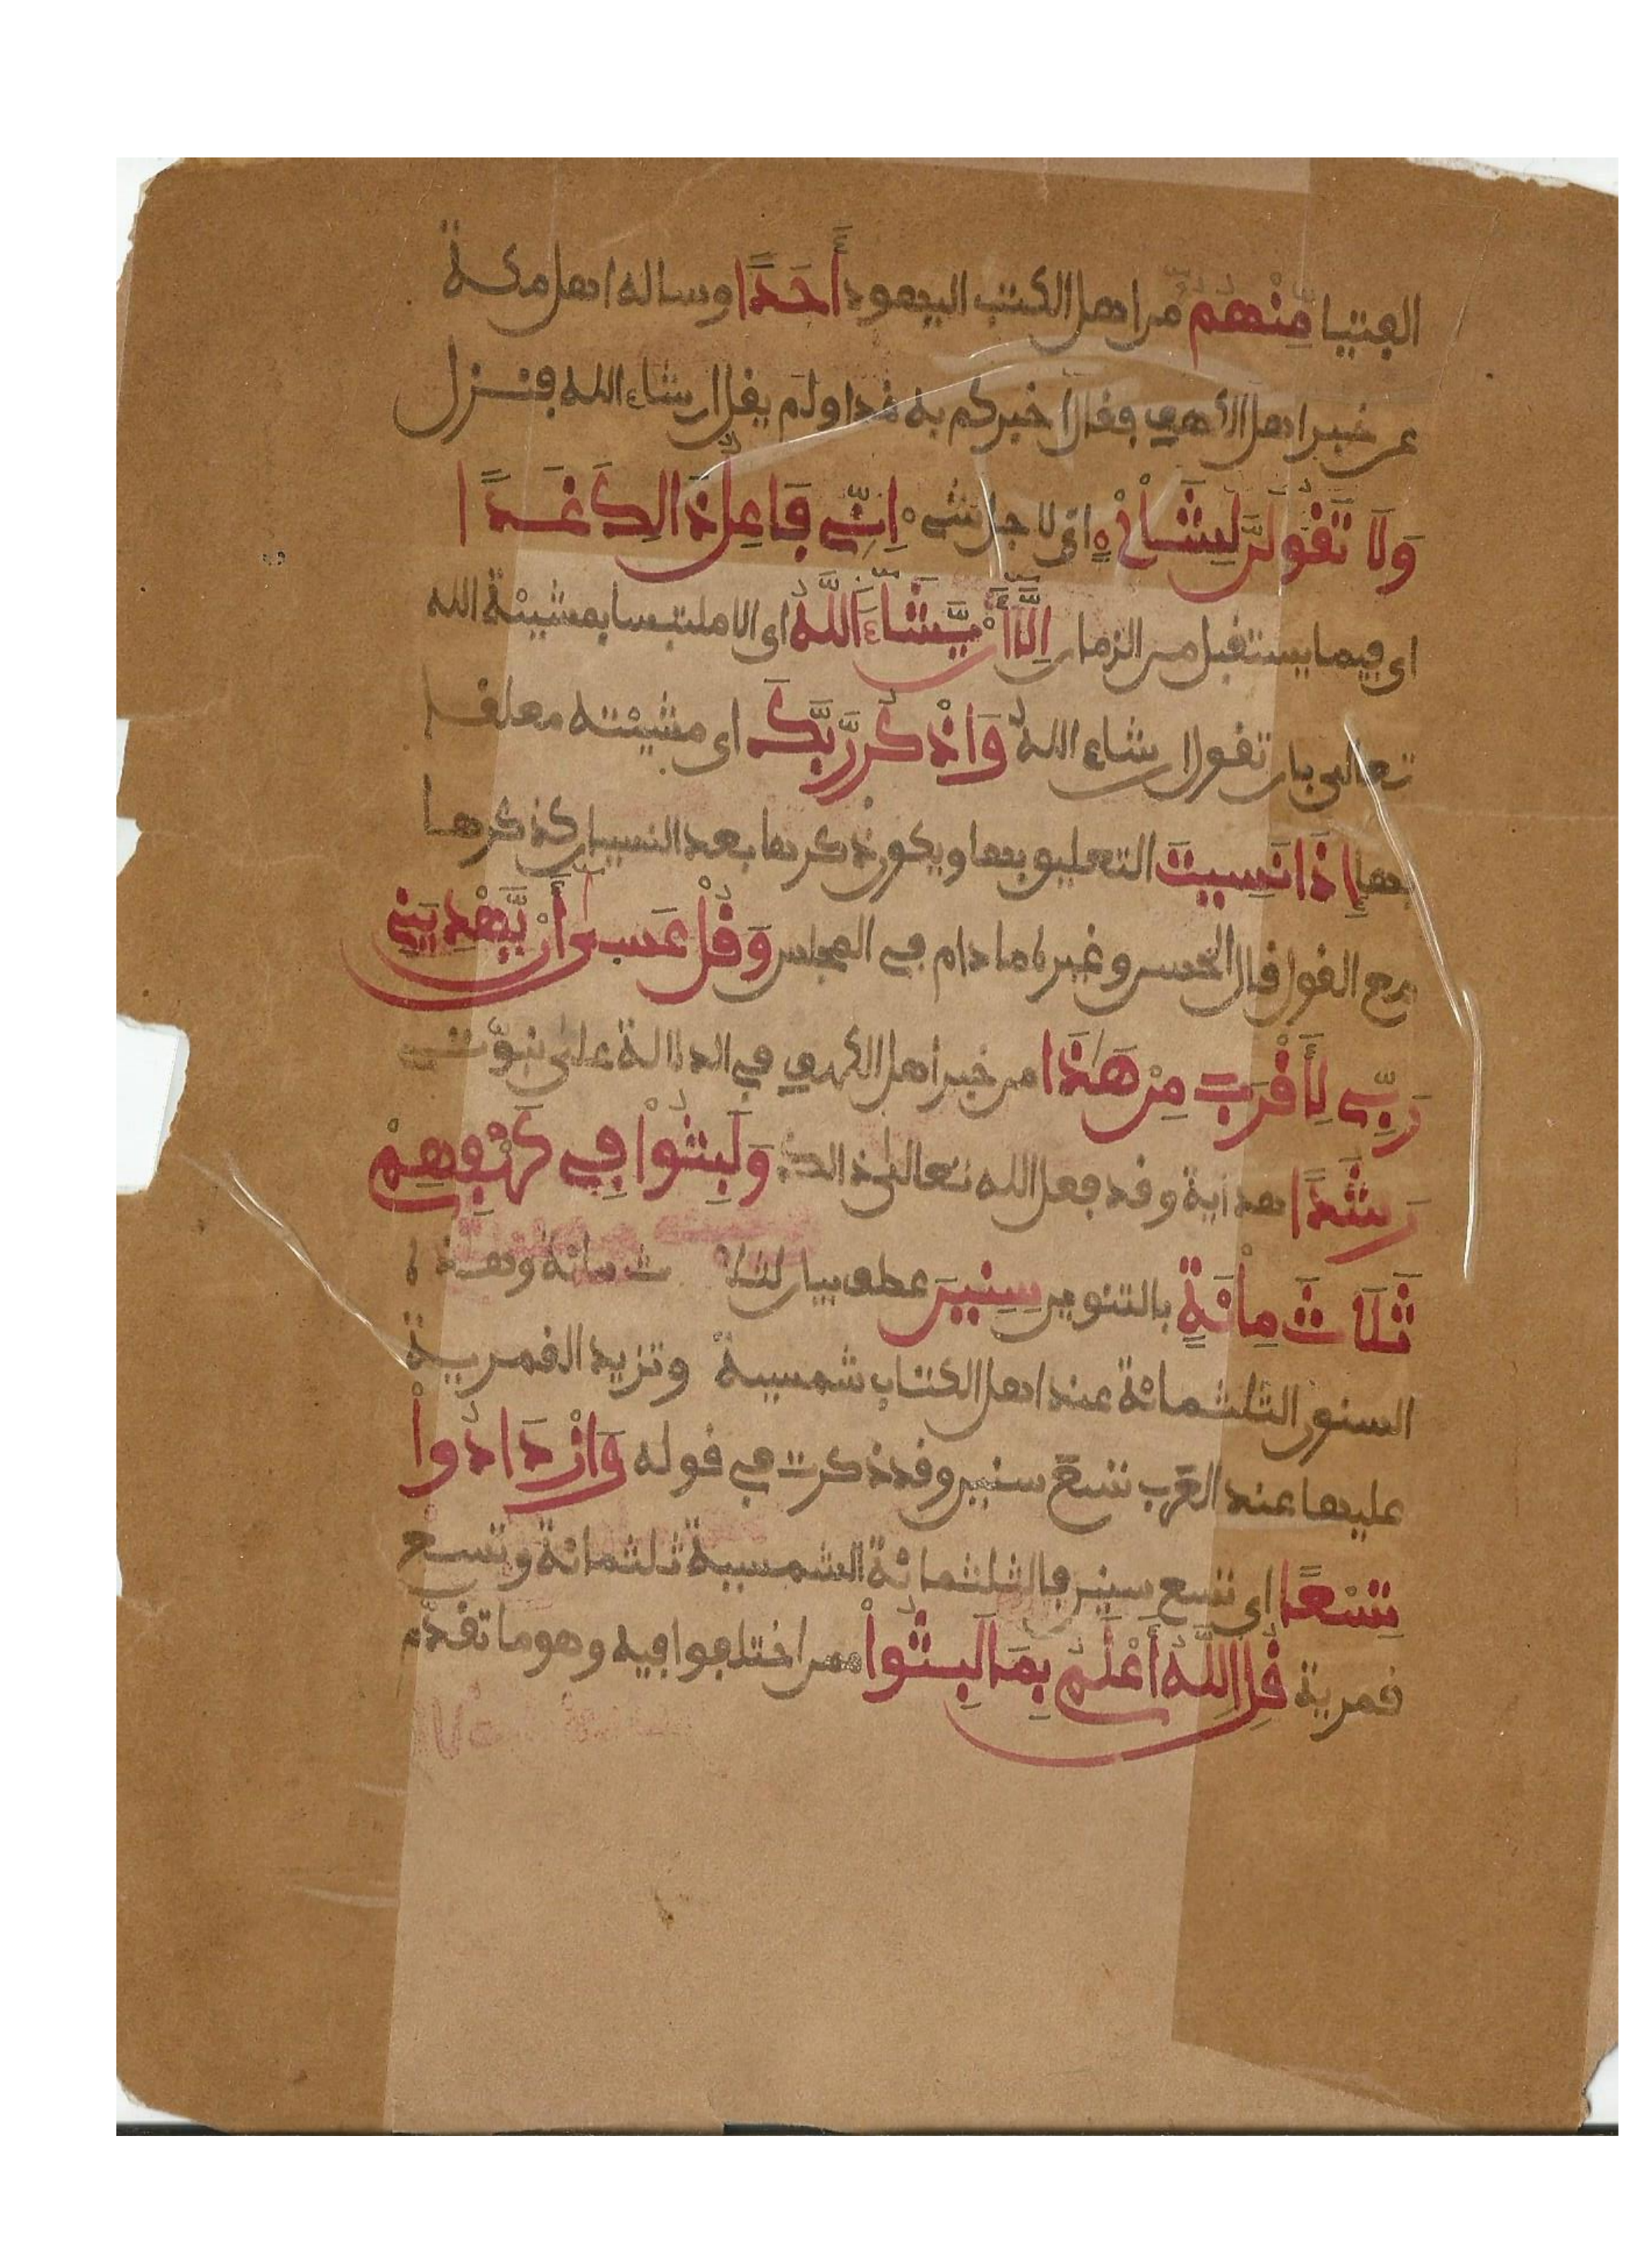 الفتيا مِنْهُم من اهل الكتب اليهود أَحَدًا وساله اهل مكة
عن خبر اهل الكهف فقال أخبركم به غدا ولم يقل ان شاء الله فنزل
وَلَا تَقُولَنَّ لِشَاْيْءٍ اي لاجل شيء اِنِّي فَاعِلٌ ذَالِكَ غَدًا
اي فيما يستقبل من الزمان اِلَّا أَنْ يَّشَاءَ اَللَّهُ اي الا ملتبسا بمشيئة الله
تعالى بان تقول ان شاء الله وَاذْكُر رَّبَّكَ اي مشيئته معلقا
بها إِذَا نَسِيتَ التعليق بها ويكون ذكرها بعد النسيان كذكرها
مع القول قال الحسن وغيره ما دام في المجلس وَقُلْ عَسىٰ أَنْ يَّهْدِيَنِ
رَبِّي لِأَقْرَبَ مِنْ هَٰذَا من خبر أهل الكهف في الدلالة على نبوّتي
رَشَدًا هداية وقد فعل الله تعالى ذالك وَلَبِثُواْ فِي كَهْفِهِمْ
ثَلَاثَ مِاْئَةٍ بالتنوين سِنِينَ عطف بيان لثلاث مائة وهذه
السنون الثلثمائة عند اهل الكتاب شمسية وتزيد القمرية
عليها عند العَرب تسعَ سنين وقد ذكرت في قوله وَازْدَادُواْ
تِسْعًا اي تسع سنين فالثلثمائة الشمسية ثلثمائة وتسع
قمرية قُلِ اِللَّهُ أَعْلَمُ بِمَا لَبِثُواْ ممن اختلفوا فيه وهو ما تقدّم